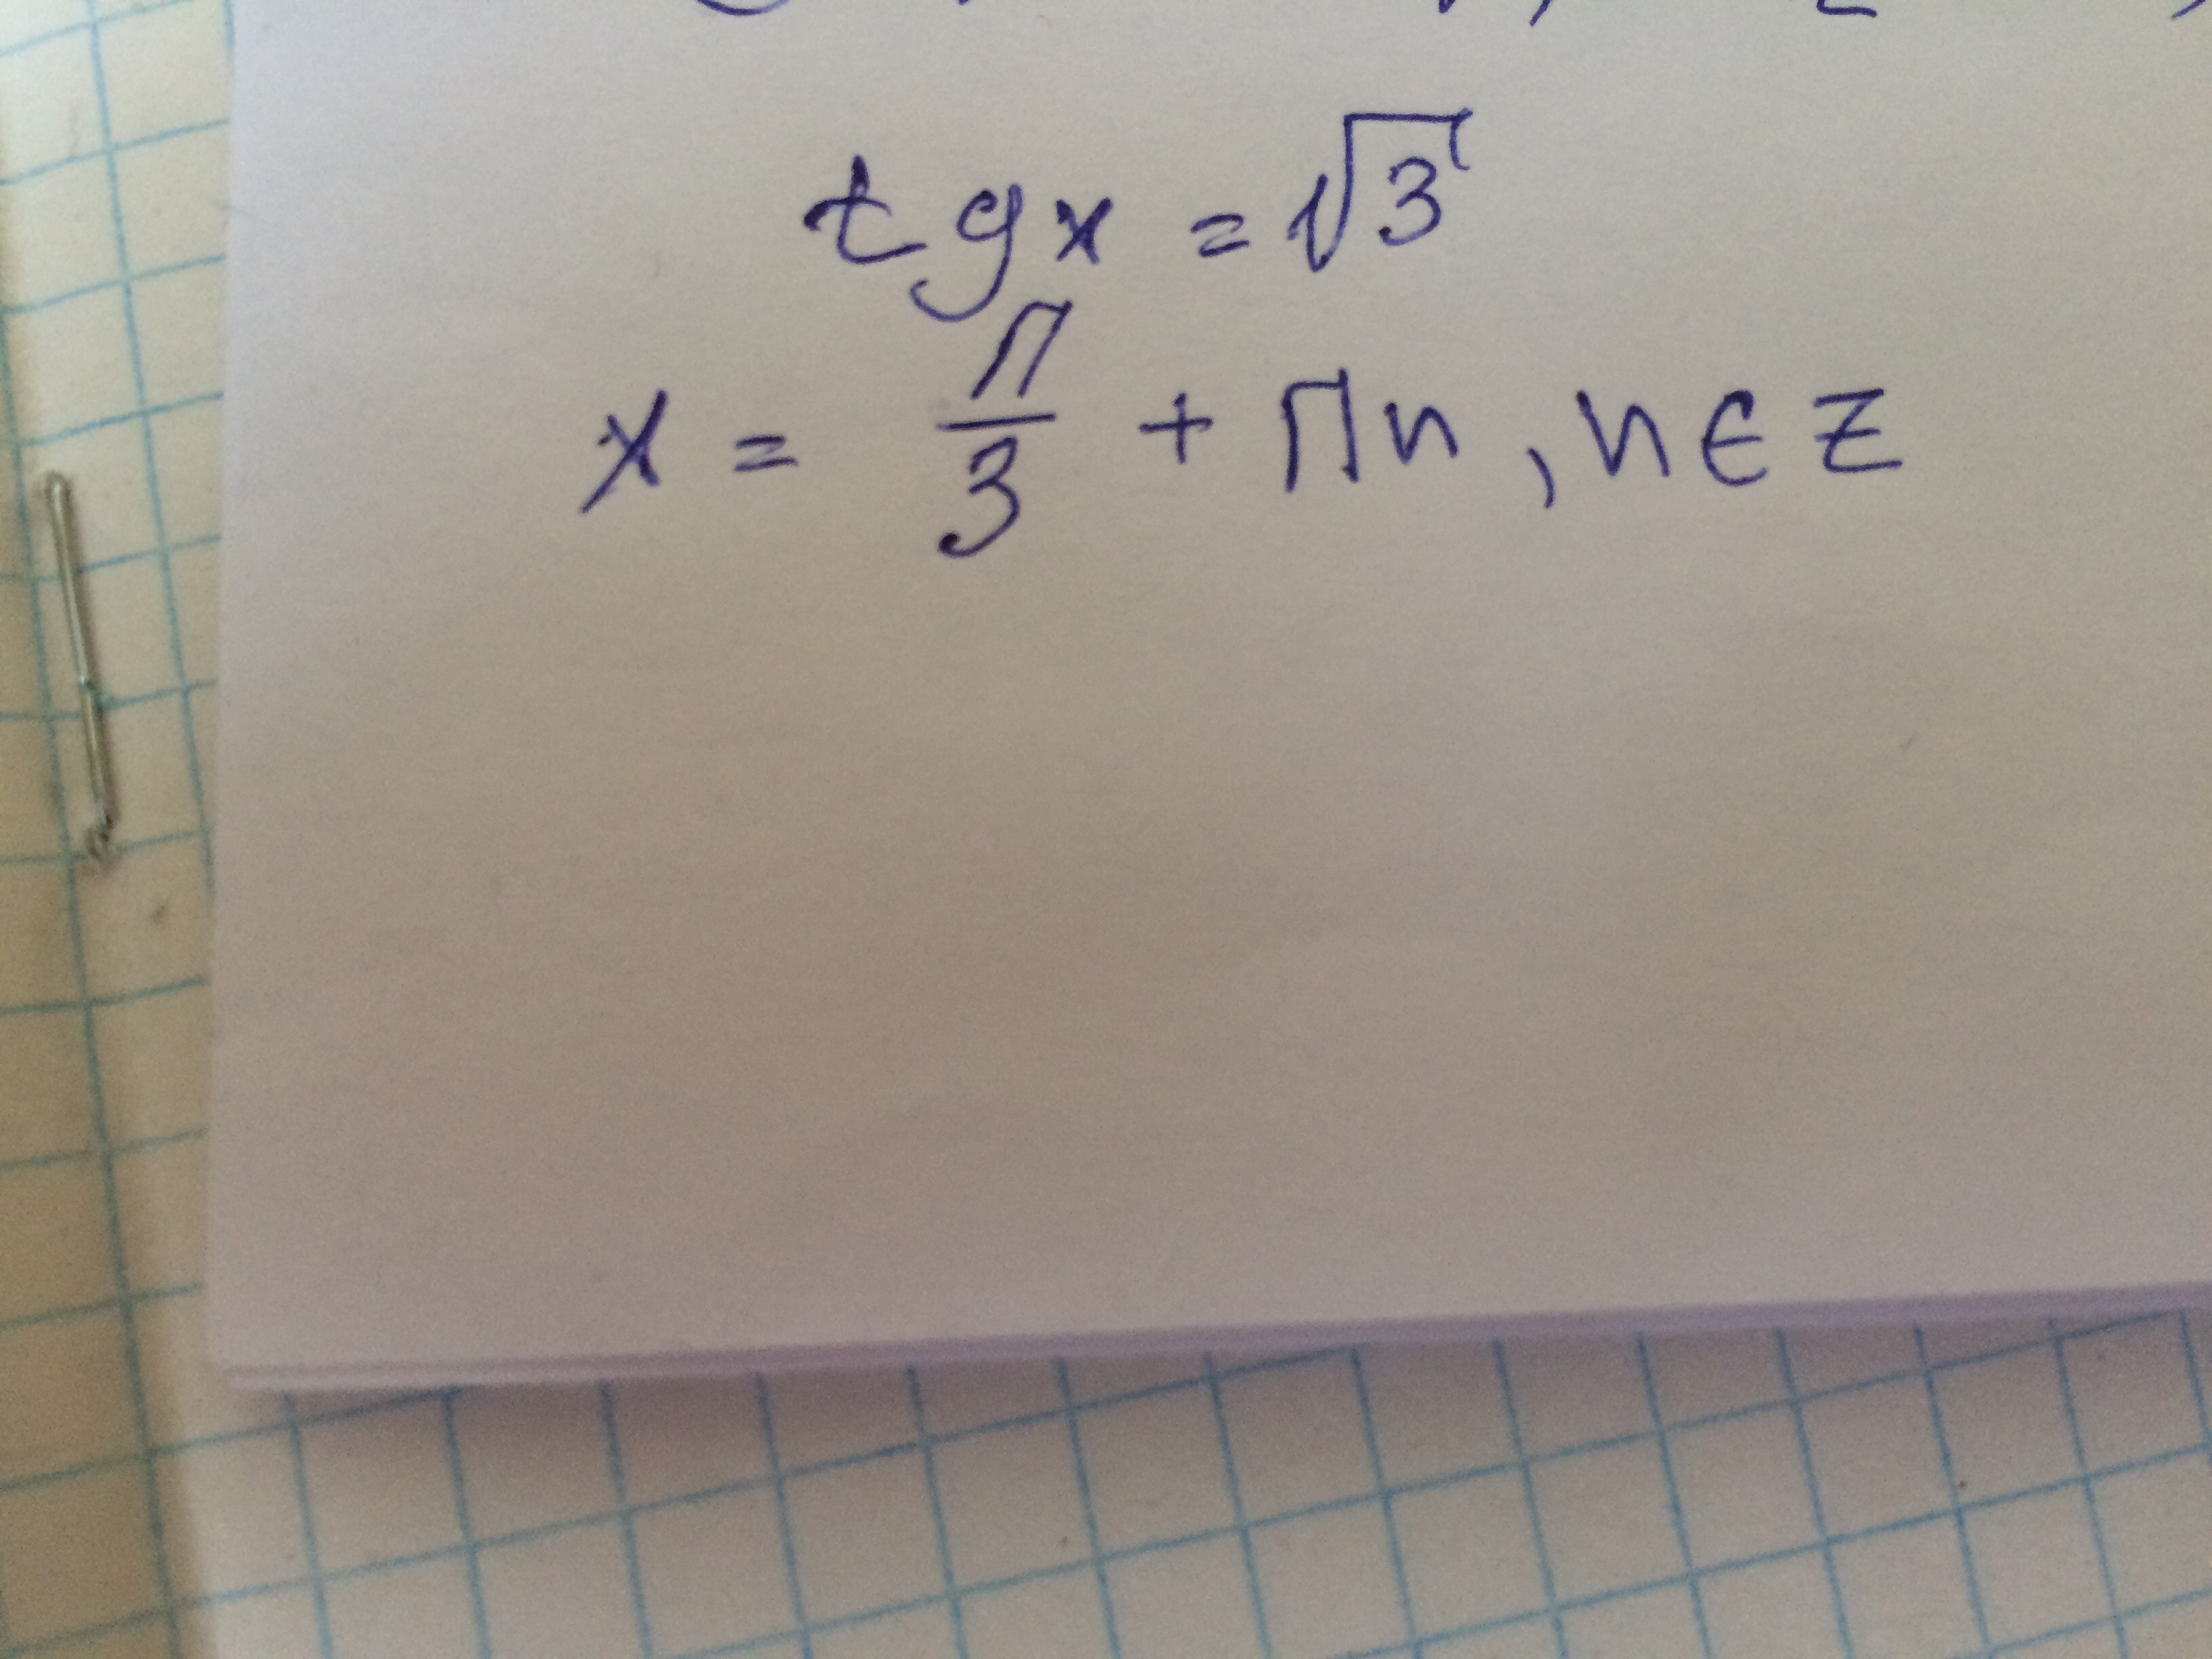 tg x = √3
x = π/3 + πn, n ∈ Z